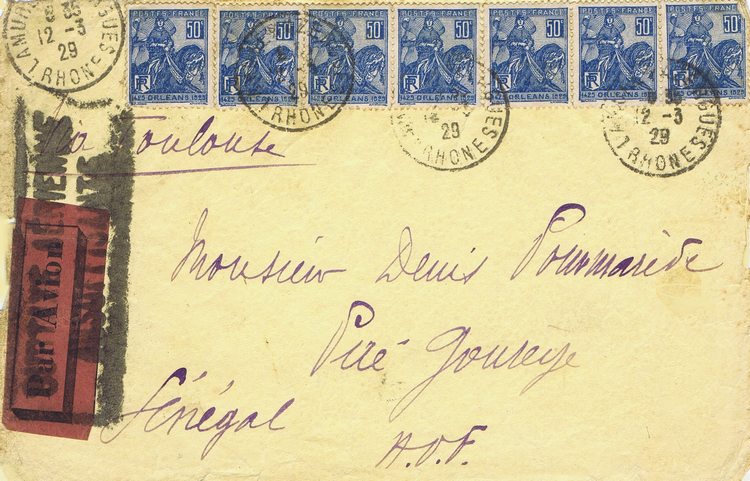 POSTES-FRANCE 50c POSTES-FRANCE 50c POSTES-FRANCE 50c POSTES-FRANCE 50c POSTES-FRANCE 50c POSTES-FRANCE 50c POSTES-FRANCE 50c
RF RF RF RF RF RF RF
1429 ORLÉANS 1929 1429 ORLÉANS 1929 1429 ORLÉANS 1929 1429 ORLÉANS 1929 1429 ORLÉANS 1929 1429 ORLÉANS 1929 1429 ORLÉANS 1929
8 35
12 -3
29
RHONE
29
RHONE
29
RHONE
8 35
12 -3
29
RHONE
Via Toulouse
Par Avion
Monsieur Denis Pourmarède
Piré Goureye
Sénégal
A.O.F.